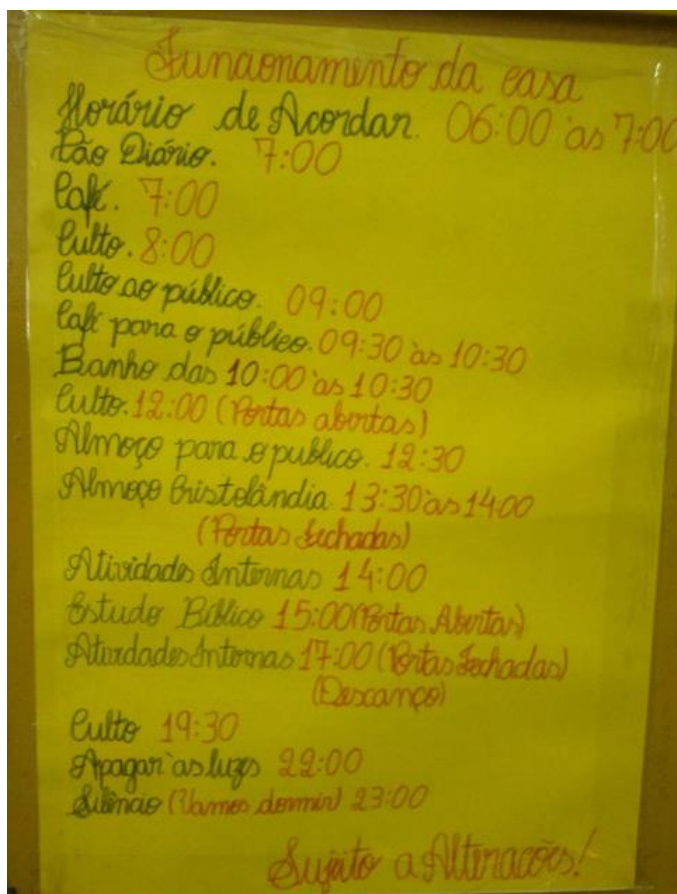 Funcionamento da casa
Horário de Acordar. 06:00 às 7:00
Pão Diário. 7:00
Café. 7:00
Culto. 8:00
Culto ao público. 09:00
Café para o público. 09:30 às 10:30
Banho das 10:00 às 10:30
Culto. 12:00 (Portas abertas)
Almoço para o publico. 12:30
Almoço Cristolândia 13:30 às 14:00
(Portas fechadas)
Atividades Internas 14:00
Estudo Bíblico 15:00 (Portas Abertas)
Atividades Internas 17:00 (Portas fechadas)
(Descanço)
Culto 19:30
Apagar às luzes 22:00
Silêncio (Vamos dormir) 23:00
Sujeito a Alterações!